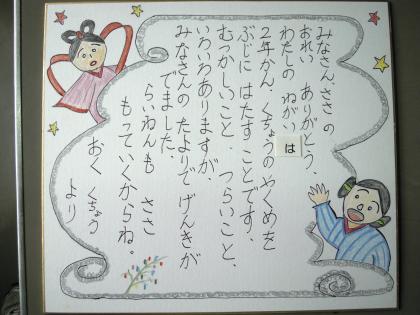 みなさん ささ の
おれい ありがとう、
わたしの ねがい は
2年かん、くちょうのやくめを
ぶじに はたすことです、
むつかしいこと、つらいこと、
いろいろありますが、
みなさんの たよりで げんきが
でました。
らいねんも ささ
もっていくからね。
おく くちょう
より